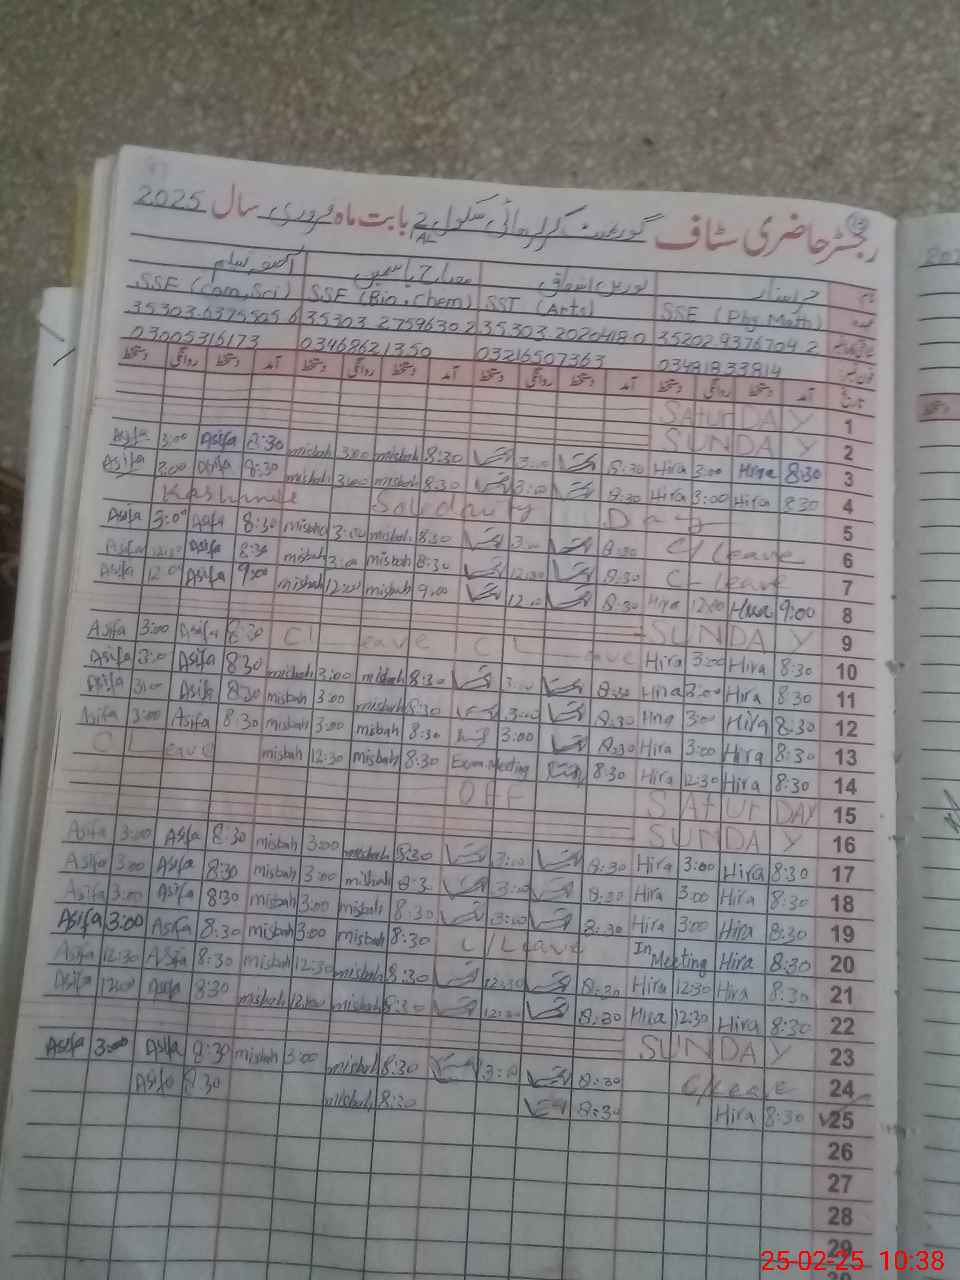 رجسٹر حاضری سٹاف گورنمنٹ گرلز ہائی سکول بابت ماہ فروری سال 2025
نام نورین اشفاق مصباح یاسمین آصفہ سلیم
عہدہ SSE (Phy, Math) SST (Arts) SSE (Bio, Chem) SSE (Com, Sci)
35202 9376704 2 35303 2020418 0 35303 2759630 2 35303 6375505 6
03481833814 03216507363 03468621350 03005316173
تاریخ آمد دستخط روانگی دستخط آمد دستخط روانگی دستخط آمد دستخط روانگی دستخط آمد دستخط روانگی دستخط
SATURDAY 1
SUNDAY 2
Asifa 3:00 Asifa 8:30 misbah 3:00 misbah 8:30 3:00 8:30 Hira 3:00 Hira 8:30 3
Asifa 3:00 Asifa 8:30 misbah 3:00 misbah 8:30 3:00 8:30 Hira 3:00 Hira 8:30 4
Kashmir Solidarity Day 5
Asifa 3:00 Asifa 8:30 misbah 3:00 misbah 8:30 3:00 8:30 C/Leave 6
Asifa 12:30 Asifa 8:30 misbah 8:30 12:30 8:30 C-leave 7
Asifa 12:00 Asifa 9:00 misbah 12:00 misbah 9:00 12:00 8:30 Hira 12:00 Hira 9:00 8
SUNDAY 9
Asifa 3:00 Asifa 8:30 CL eave CL eave Hira 3:00 Hira 8:30 10
Asifa 3:00 Asifa 8:30 misbah 3:00 misbah 8:30 3:00 8:30 Hira 3:00 Hira 8:30 11
Asifa 3:00 Asifa 8:30 misbah 3:00 misbah 8:30 3:00 8:30 Hira 3:00 Hira 8:30 12
Asifa 3:00 Asifa 8:30 misbah 3:00 misbah 8:30 3:00 8:30 Hira 3:00 Hira 8:30 13
CL eave misbah 12:30 misbah 8:30 Exam.Meeting 8:30 Hira 12:30 Hira 8:30 14
OFF SATURDAY 15
SUNDAY 16
Asifa 3:00 Asifa 8:30 misbah 3:00 misbah 8:30 3:00 8:30 Hira 3:00 Hira 8:30 17
Asifa 3:00 Asifa 8:30 misbah 3:00 misbah 8:30 3:00 8:30 Hira 3:00 Hira 8:30 18
Asifa 3:00 Asifa 8:30 misbah 3:00 misbah 8:30 3:00 8:30 Hira 3:00 Hira 8:30 19
Asifa 3:00 Asifa 8:30 misbah 3:00 misbah 8:30 C/Leave In Meeting Hira 8:30 20
Asifa 12:30 Asifa 8:30 misbah 12:30 misbah 8:30 12:30 8:30 Hira 12:30 Hira 8:30 21
Asifa 12:00 Asifa 8:30 misbah 12:00 misbah 8:30 12:30 8:30 Hira 12:30 Hira 8:30 22
SUNDAY 23
Asifa 3:00 Asifa 8:30 misbah 3:00 misbah 8:30 3:00 8:30 C/Leave 24
Asifa 8:30 misbah 8:30 8:30 Hira 8:30 25
26
27
28
29
25-02-25 10:38